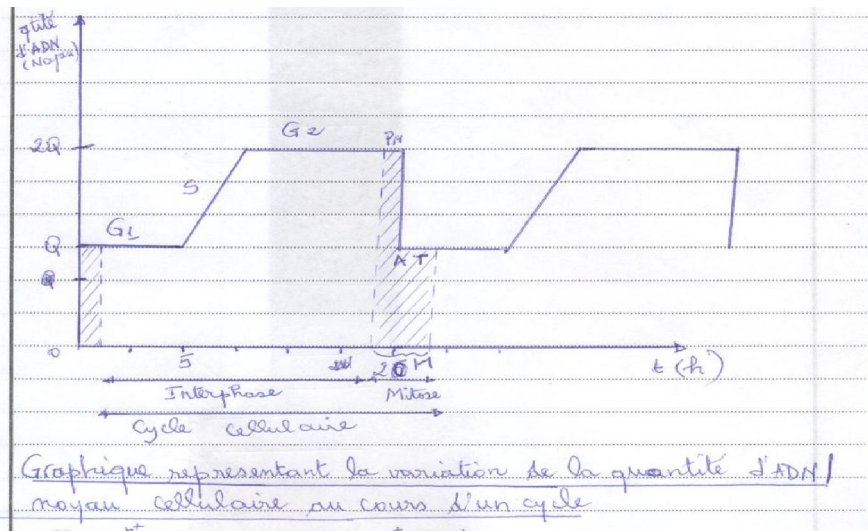 qtité
d'ADN
(Noyau)
2Q
G2
PM
S
G1
Q
A T
0
5
M
t (h)
Interphase
Mitose
Cycle cellulaire
Graphique representant la variation de la quantité d'ADN/
noyau cellulaire au cours d'un cycle